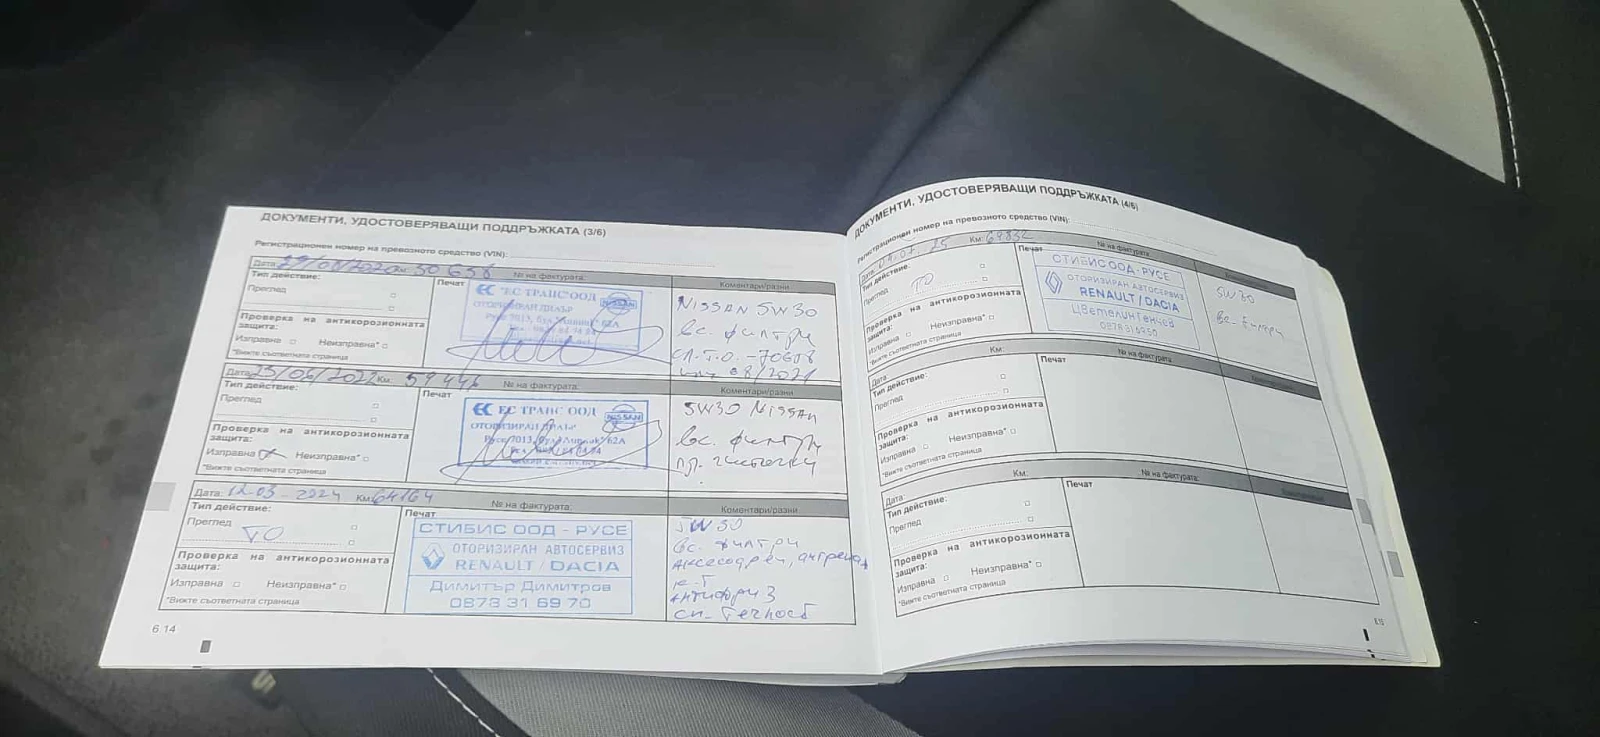 ДОКУМЕНТИ, УДОСТОВЕРЯВАЩИ ПОДДРЪЖКАТА (3/6)
Регистрационен номер на превозното средство (VIN):
Дата: 29/08/2020 Км: 50 658 № на фактурата:
Тип действие:
Печат
Коментари/разни
Преглед
"ЕС ТРАНС" ООД
ОТОРИЗИРАН ДИЛЪР
NISSAN
Русе 7013, бул. "Липник" 62А
Проверка на антикорозионната
защита:
Изправна Неизправна*
*Вижте съответната страница
NISSAN 5W30
вс. филтри
сл. Т.О. - 70658
08/2021
Дата: 23/06/2022 Км: 59 446 № на фактурата:
Тип действие:
Печат
Коментари/разни
Преглед
ЕС ТРАНС ООД
ОТОРИЗИРАН ДИЛЪР
NISSAN
Русе 7013, бул. "Липник" 62А
Проверка на антикорозионната
защита:
Изправна Неизправна*
*Вижте съответната страница
5W30 NISSAN
вс. филтри
Дата: 12-03-2024 Км: 64164 № на фактурата:
Тип действие:
Печат
Коментари/разни
Преглед
ТО
СТИБИС ООД - РУСЕ
ОТОРИЗИРАН АВТОСЕРВИЗ
RENAULT / DACIA
Димитър Димитров
0878 31 69 70
Проверка на антикорозионната
защита:
Изправна Неизправна*
*Вижте съответната страница
5W30
вс. филтри
к-т
антифриз
сп. течност
6.14
ДОКУМЕНТИ, УДОСТОВЕРЯВАЩИ ПОДДРЪЖКАТА (4/6)
Регистрационен номер на превозното средство (VIN):
Дата: 04.07.25 Км: 69832 № на фактурата:
Тип действие:
Печат
Преглед
ТО
СТИБИС ООД - РУСЕ
ОТОРИЗИРАН АВТОСЕРВИЗ
RENAULT / DACIA
Цветелин Генчев
Проверка на антикорозионната
защита:
Изправна Неизправна*
*Вижте съответната страница
5W30
вс. филтри
Дата: Км: № на фактурата:
Тип действие:
Печат
Преглед
Проверка на антикорозионната
защита:
Изправна Неизправна*
*Вижте съответната страница
Дата: Км: № на фактурата:
Тип действие:
Печат
Преглед
Проверка на антикорозионната
защита:
Изправна Неизправна*
*Вижте съответната страница